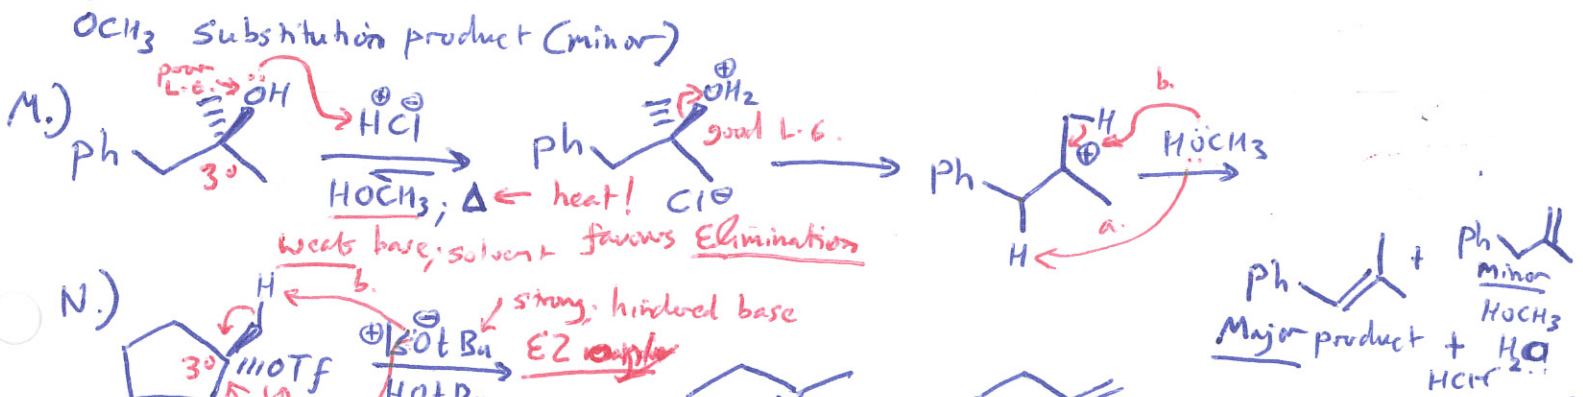 OCH3 Substitution product (minor)
M.)
poor
L.G.
OH
Ph
3°
⊕ ⊖
HCl
HOCH3; Δ ← heat!
weak base; solvent favors Elimination
⊕
OH2
Ph
good L.G.
Cl⊖
H
⊕
Ph
H
a.
b.
HOCH3
Ph
Major product
+
Ph
minor
HOCH3
+ H2O
HCl
N.)
H
b.
3°
OTf
⊕ ⊖
KOtBu
strong, hindered base
E2